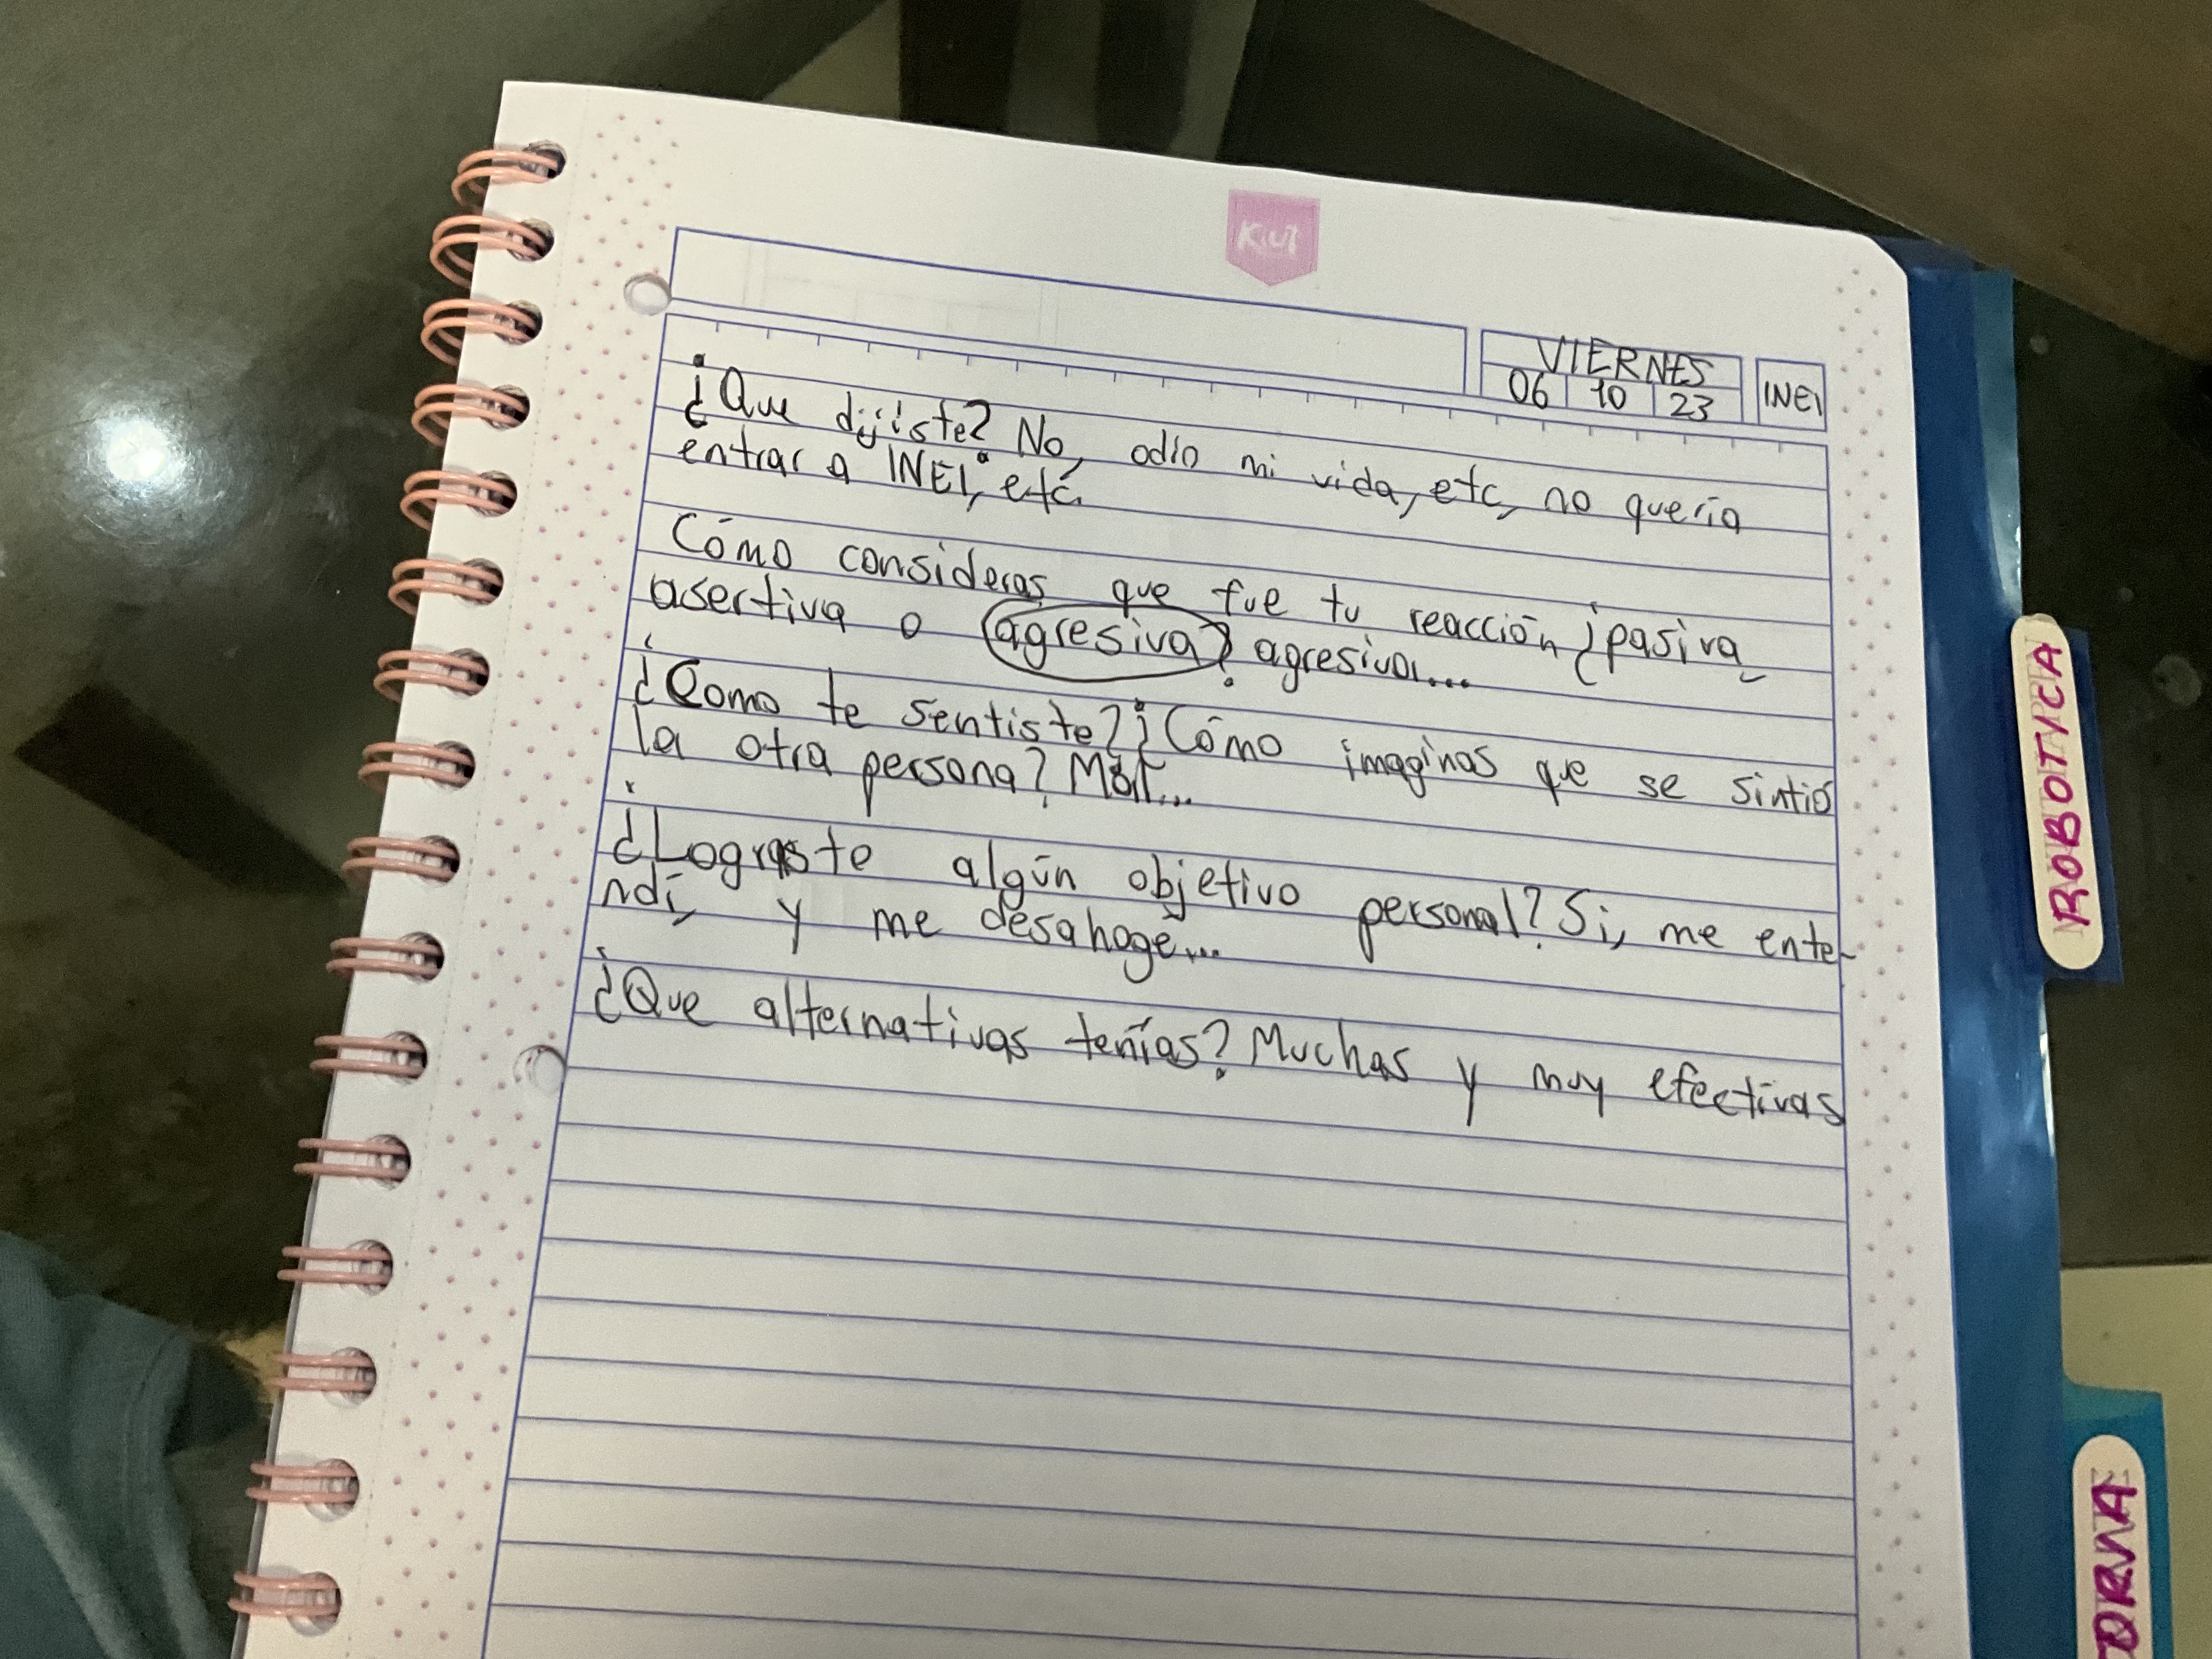 Kiut
VIERNES
06 10 23
INEI
¿Que dijiste? No, odio mi vida, etc, no quería
entrar a INEI, etc.
Cómo consideras que fue tu reacción ¿pasiva,
asertiva o agresiva? agresiva...
¿Como te sentiste? ¿Cómo imaginas que se sintió
la otra persona? Mal...
¿Lograste algún objetivo personal? Si, me ente-
ndí, y me desahoge...
¿Que alternativas tenías? Muchas y muy efectivas
ROBOTICA